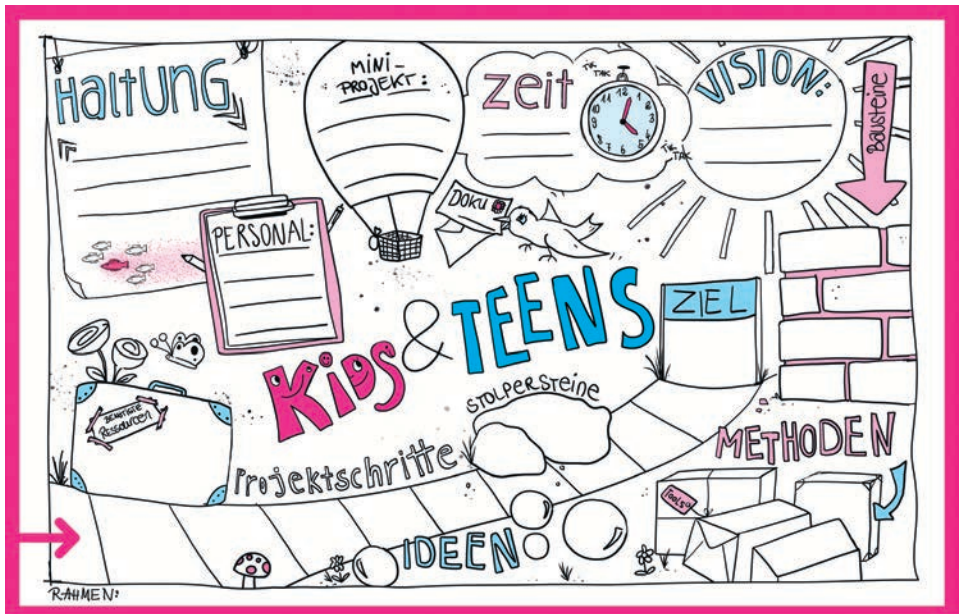 HALTUNG
MINI-
PROJEKT:
ZEIT
TIK
TAK
12
1
2
3
4
5
6
7
8
9
10
11
TIK
TAK
VISION:
Bausteine
PERSONAL:
DOKU
KiDS & TEENS
ZIEL
BENÖTIGTE
RESSOURCEN
STOLPERSTEINE
Projektschritte
METHODEN
Tools
IDEEN
RAHMEN: